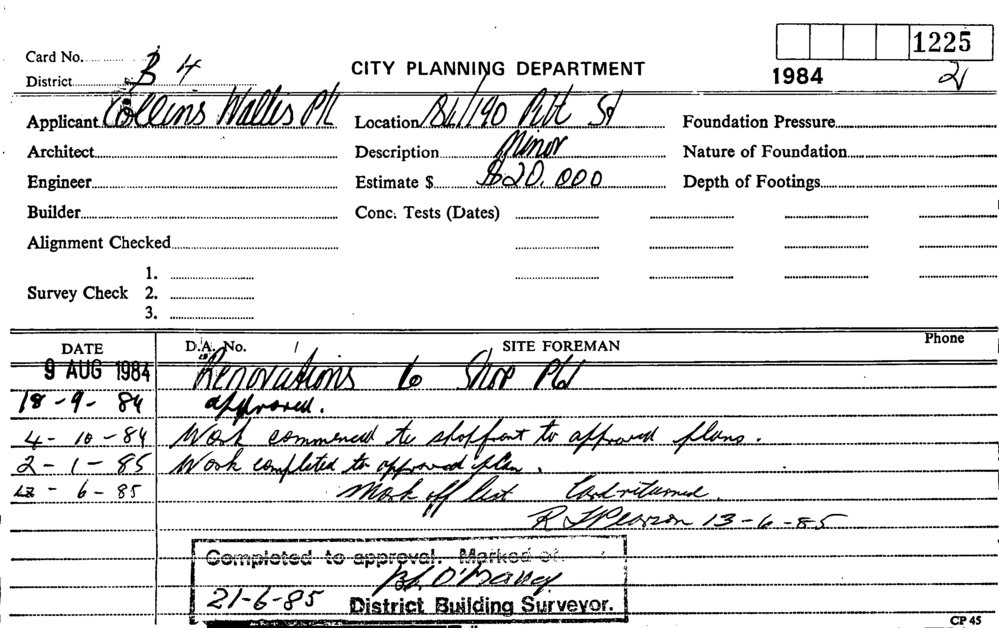 1225
Card No. CITY PLANNING DEPARTMENT 1984 2
District B 4
Applicant Collins Wallis P/L Location 186/190 Pitt St Foundation Pressure
Architect Description Minor Nature of Foundation
Engineer Estimate $ $20,000 Depth of Footings
Builder Conc. Tests (Dates)
Alignment Checked
1.
Survey Check 2.
3.
DATE D.A. No. SITE FOREMAN Phone
9 AUG 1984 Renovations to Shop
18-9-84 approved.
4-10-84 Work commenced to shopfront to approved plans.
2-1-85 Work completed to approved plan.
6-85 Mark off list Card returned.
R Pearson 13-6-85
Completed to approval. Marked of
21-6-85 District Building Surveyor.
CP 45